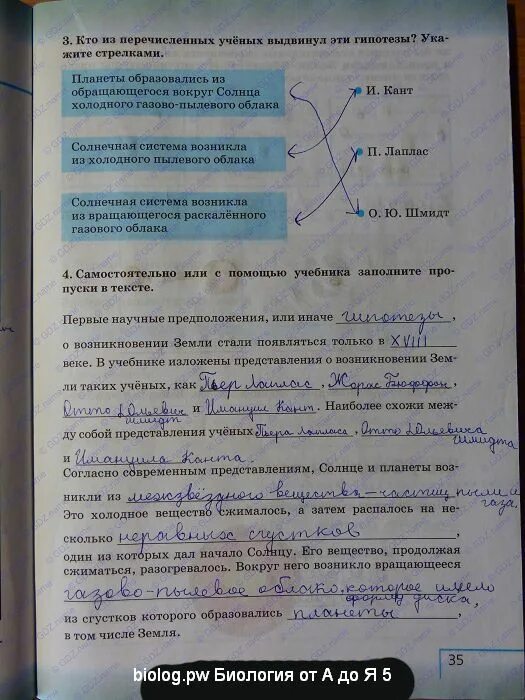 3. Кто из перечисленных учёных выдвинул эти гипотезы? Ука-
жите стрелками.
Планеты образовались из
обращающегося вокруг Солнца
холодного газово-пылевого облака
И. Кант
Солнечная система возникла
из холодного пылевого облака
П. Лаплас
Солнечная система возникла
из вращающегося раскалённого
газового облака
О. Ю. Шмидт
4. Самостоятельно или с помощью учебника заполните про-
пуски в тексте.
Первые научные предположения, или иначе гипотезы,
о возникновении Земли стали появляться только в XVIII
веке. В учебнике изложены представления о возникновении Зем-
ли таких учёных, как Пьер Лаплас, Жорж Бюффон,
Отто Юльевич Шмидт и Иммануил Кант. Наиболее схожи меж-
ду собой представления учёных Пьера Лапласа, Отто Юльевича Шмидта
и Иммануила Канта.
Согласно современным представлениям, Солнце и планеты воз-
никли из межзвёздного вещества – частиц пыли и газа.
Это холодное вещество сжималось, а затем распалось на не-
сколько неравных сгустков,
один из которых дал начало Солнцу. Его вещество, продолжая
сжиматься, разогревалось. Вокруг него возникло вращающееся
газово-пылевое облако, которое имело форму диска,
из сгустков которого образовались планеты,
в том числе Земля.
35
biolog.pw Биология от А до Я 5